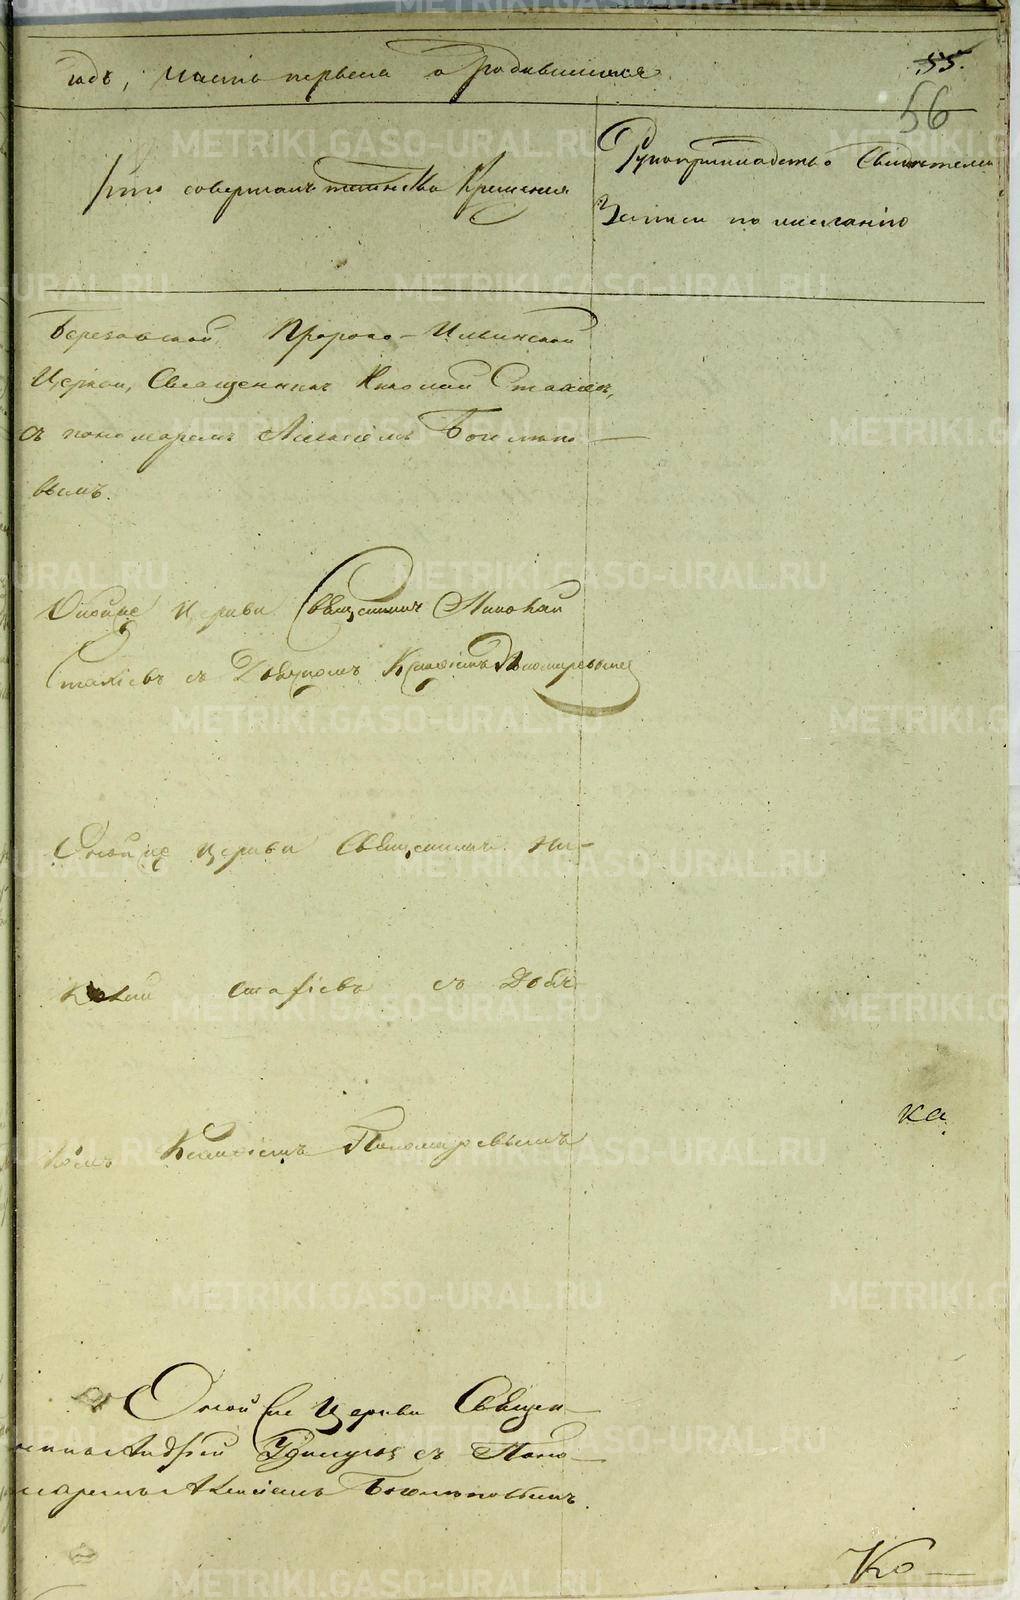 годъ, часть первая о родившихся.
55.
56
Кто совершалъ таинство Крещения
Рукоприкладство Свидетелей
Записи по желанію
Березовской Пророко-Ильинской
Церкви, Священникъ Николай Стахіевъ,
съ пономаремъ Алексіемъ
вымъ.
Оной же Церкви Священникъ Николай
Стахіевъ съ Дьячкомъ Пономаревымъ
Оной же церкви Священникъ Ни-
колай Стахіевъ съ Дьяч
комъ Пономаревымъ
ка
Оной же Церкви Священ-
никъ Андрей съ Поно-
маремъ Алексіемъ
Ко-
METRIKI.GASO-URAL.RU